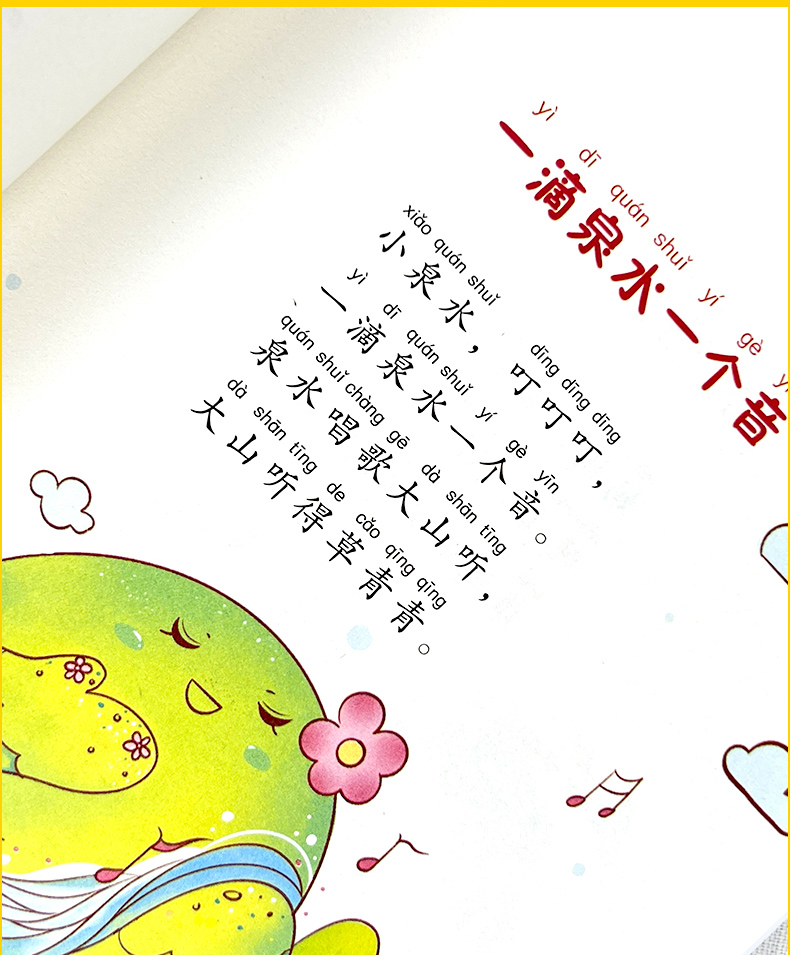 yì dī quán shuǐ yí gè
一滴泉水一个音
xiǎo quán shuǐ dīng dīng dīng
小泉水，叮叮叮，
yì dī quán shuǐ yí gè yīn
一滴泉水一个音。
quán shuǐ chàng gē dà shān tīng
泉水唱歌大山听，
dà shān tīng de cǎo qīng qīng
大山听得草青青。